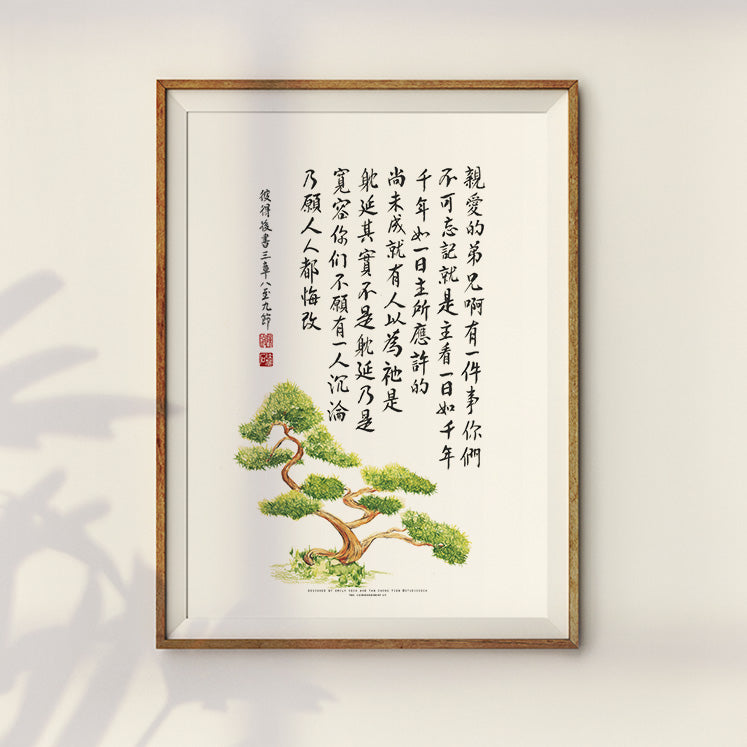 親愛的弟兄啊有一件事你們
不可忘記就是主看一日如千年
千年如一日主所應許的
尚未成就有人以為祂是
躭延其實不是躭延乃是
寬容你们不願有一人沉淪
乃願人人都悔改
彼得後書三章八至九節
DESIGNED BY EMILY AND TAN